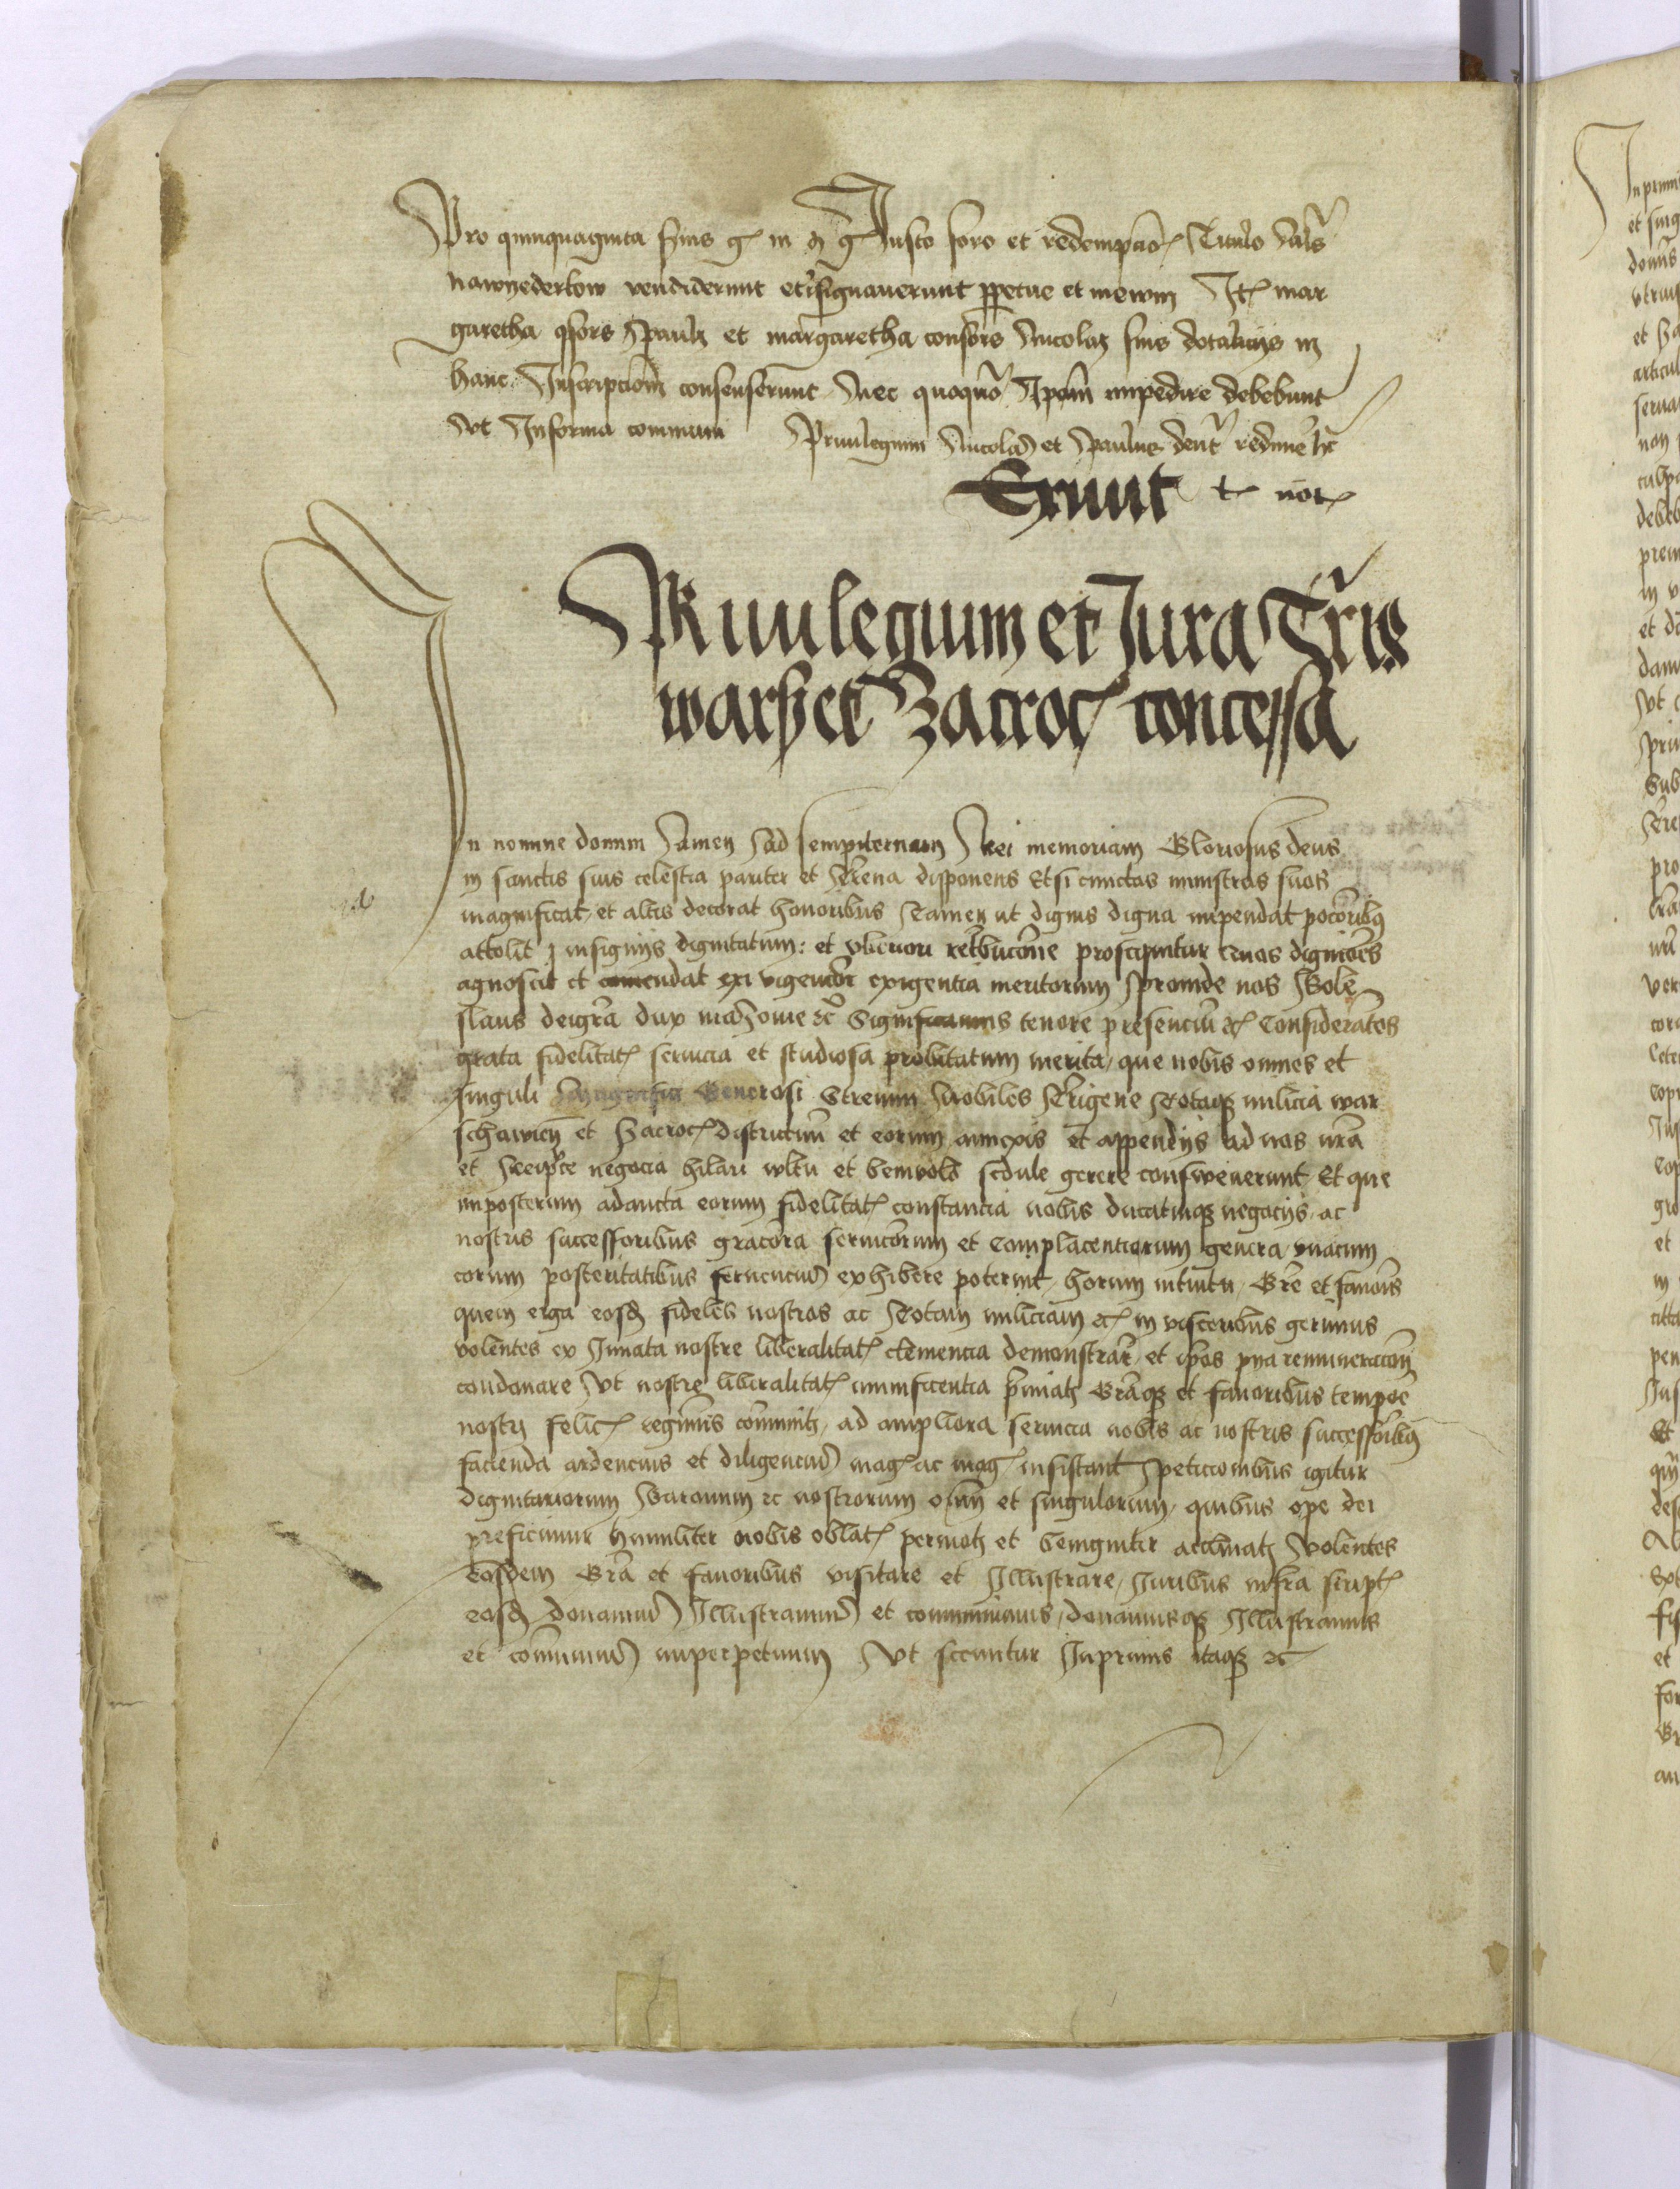 Pro quinquaginta sexis gr in m gr Iusto foro et redempcōe Titulo
nawyederkow vendiderunt et resignaverunt ppetue et inewm Itē mar
garetha ɋsors Pauli et margaretha consors Nicolai suis dotaliciis in
hanc Inscripcionē consenserunt Nec quoquō Ipam impedire debebunt
Vt Informa communi Privilegium Nicolaus et Paulus dent redimē
Exiunt not
PRivilegium et Jura Tr̄is
warsch et Zacroc concessa
In nomine domini Amen Ad sempiternam Rei memoriam Gloriosus deus
in sanctis suis celestia pariter et terrena disponens Etsi cunctos ministros suos
magnificat et altis decorat honoribus Tamen ut dignis digna impendat pocōribus
attolit insigniis dignitatum: et vberiori retbucōne prosequitur Quos digniores
agnoscit et comendat exigentia meritorum Proinde nos Bole
slaus dei grā dux mazovie etc Significamus tenore presenciū etc Considerātes
grata fidelitat servicia et studiosa probitatum merita, que nobis omnes et
singuli Magnifici Generosi Strenui Nobiles Terrigene Totaqʒ milicia war
schawien et Zacroc districtuū et eorum annexis et appendiis ad nos nrā
et negocia hilari vultu et benivolo sedule gerere conswenerunt Et que
imposterum adaucta eorum fidelitat constancia nobis ducatuiqʒ negociis ac
nostris successoribus graciora serviciorum et Complacentiarum genera, vnacum
eorum posteritatibus fervencius exhibere poterint, horum intuitu, Grē et favoris
quem erga eosd fideles nostros ac Totam miliciam etc in visceribus gerimus
volentes ex Innata nostre liberalitat clemencia demonstrare, et ipos remuneracōn
condonare Vt nostre liberalitat munificentia Grāqʒ et favoribus tempoē
nostri felic regiminis ad ampliora servicia nobis ac nostris successoribus
facienda ardencius et diligencius mag ac mag insistant Peticionibus igitur
dignitariorum Baronum ac nostrorum oīm et singulorum, quibus ope dei
preficimur humiliter nobis oblat permoti et benigniter acclinati Volentes
eosdem Grā et favoribus visitare et Illustrare, Iuribus infra script
eosd donamus Illustramus et communimus, donamusqʒ Illustramus
et cōmunimus imperpetuum Vt secuntur Inprimis itaqʒ etc